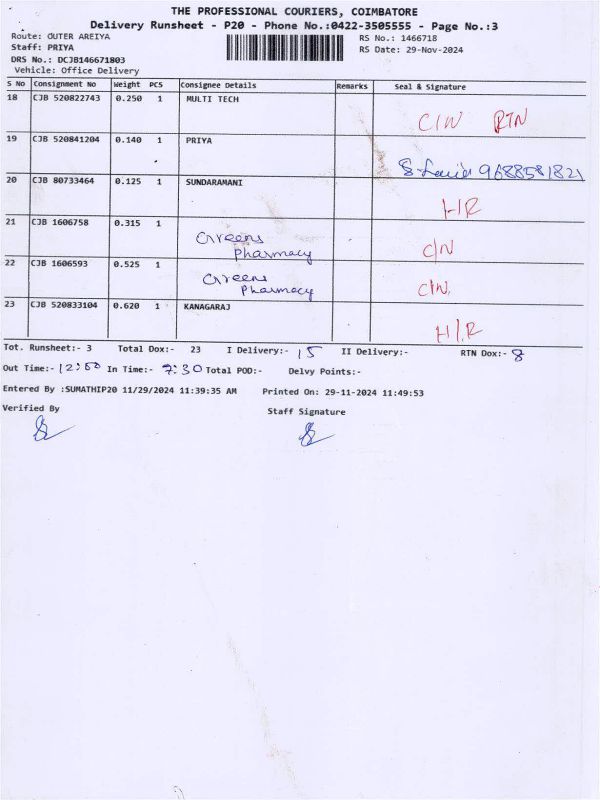 THE PROFESSIONAL COURIERS, COIMBATORE
Delivery Runsheet - P20 - Phone No.:0422-3505555 - Page No.:3
Route: OUTER AREIYA
RS No.: 1466718
Staff: PRIYA
RS Date: 29-Nov-2024
DRS No.: DCJB146671803
Vehicle: Office Delivery
S No Consignment No Weight PCS Consignee Details Remarks Seal & Signature
18 CJB 520822743 0.250 1 MULTI TECH
C/N RTN
19 CJB 520841204 0.140 1 PRIYA
9688581821
20 CJB 80733464 0.125 1 SUNDARAMANI
H/R
21 CJB 1606758 0.315 1 Greens Pharmacy
C/N
22 CJB 1606593 0.525 1 Greens Pharmacy
C/N
23 CJB 520833104 0.620 1 KANAGARAJ
H/R
Tot. Runsheet:- 3 Total Dox:- 23 I Delivery:- 15 II Delivery:- RTN Dox:- 8
Out Time:- In Time:- 7:30 Total POD:- Delvy Points:-
Entered By :SUMATHIP20 11/29/2024 11:39:35 AM Printed On: 29-11-2024 11:49:53
Verified By Staff Signature